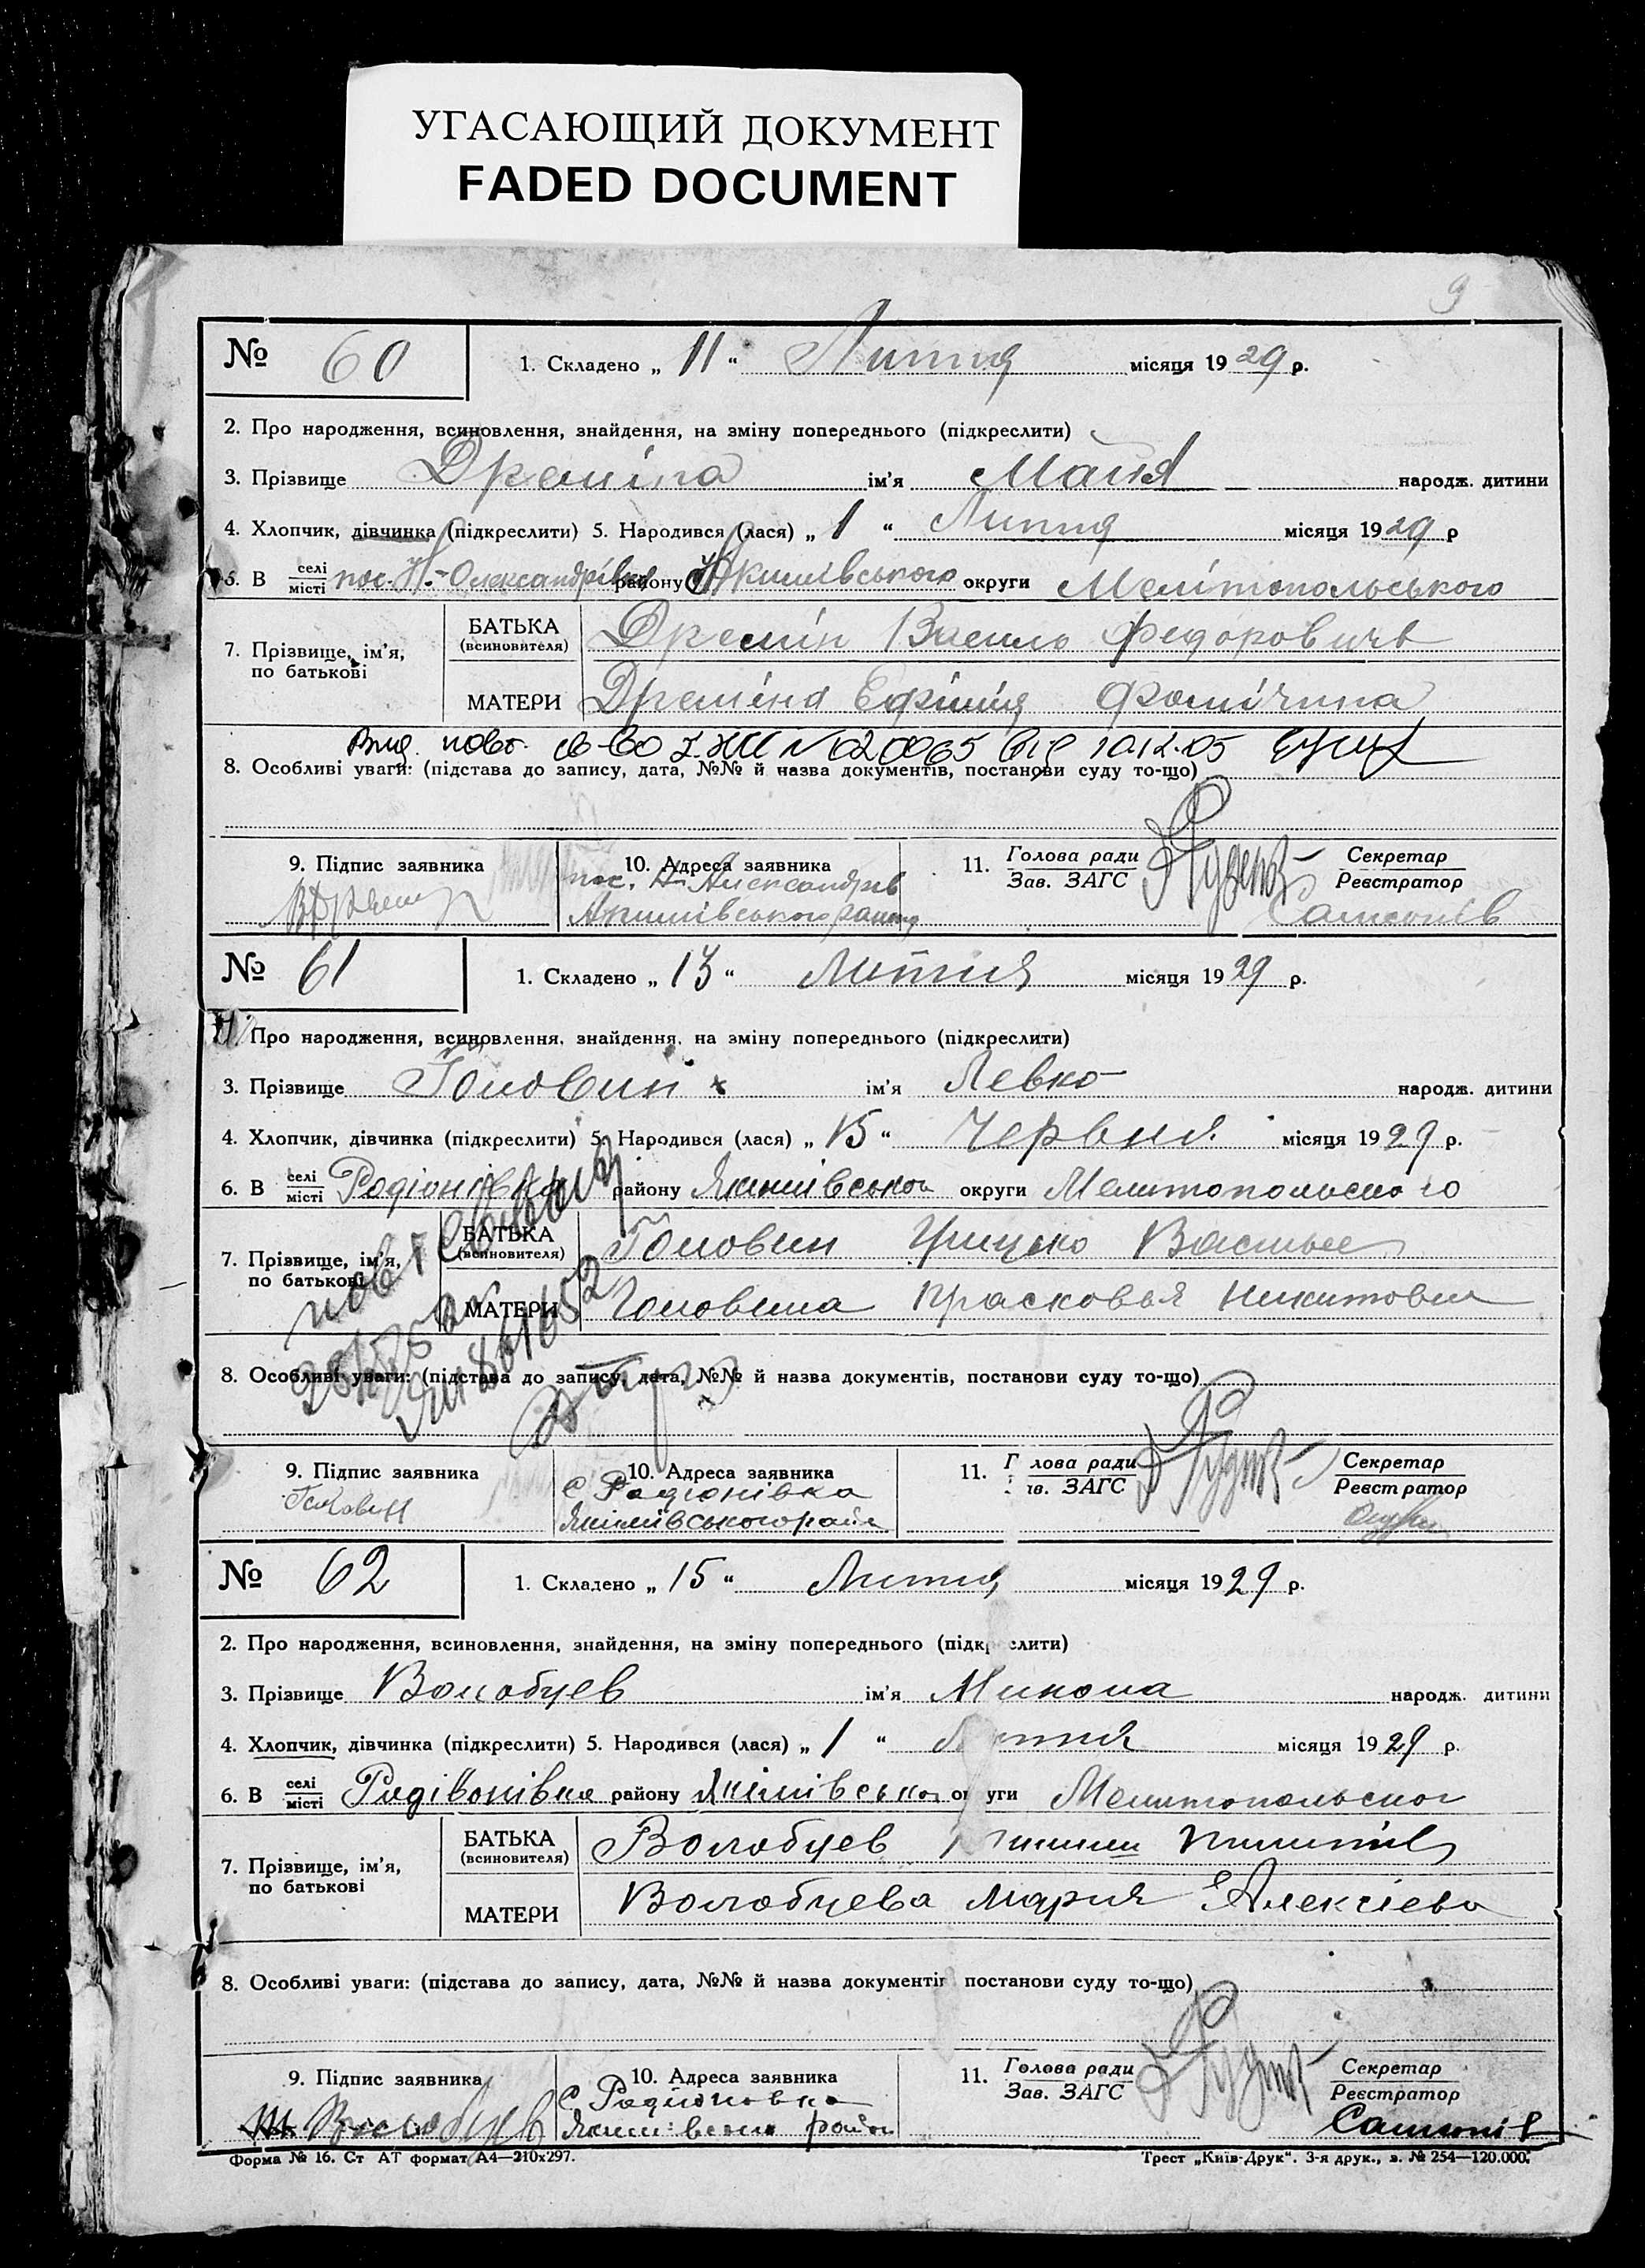 УГАСАЮЩИЙ ДОКУМЕНТ
FADED DOCUMENT
9
№ 60 1. Складено „ 11 “ Липня місяця 19 29 р.
2. Про народження, всиновлення, знайдення, на зміну попереднього (підкреслити)
3. Прізвище Дреміна ім’я Майя народж. дитини
4. Хлопчик, дівчинка (підкреслити) 5. Народився (лася) „ 1 “ Липня місяця 19 29 р
6. В селі місті пос. Н.-Олександрівка району Якимівського округи Мелітопольського
7. Прізвище, ім’я, по батькові
БАТЬКА (всиновителя) Дремін Василь Федорович
МАТЕРИ Дреміна Ефімія Фомічина
Вид. повт. св-во
8. Особливі уваги: (підстава до запису, дата, №№ й назва документів, постанови суду то-що)
9. Підпис заявника 10. Адреса заявника 11. Голова ради Зав. ЗАГС Секретар Реєстратор
пос. Н. Александрів
Якимівського району
Самсонів
№ 61 1. Складено „ 13 “ Липня місяця 19 29 р.
Про народження, всиновлення, знайдення, на зміну попереднього (підкреслити)
3. Прізвище Головин ім’я Левко народж. дитини
4. Хлопчик, дівчинка (підкреслити) 5. Народився (лася) „ 15 “ Червня місяця 19 29 р.
6. В селі місті Радіонівка району Якимівськог округи Мелитопольського
7. Прізвище, ім’я, по батькові
БАТЬКА (всиновителя) Головин Грицько Васильев
МАТЕРИ Головина Прасковья Никитовна
8. Особливі уваги: (підстава до запису, дата, №№ й назва документів, постанови суду то-що)
9. Підпис заявника 10. Адреса заявника 11. Г лова ради ів. ЗАГС Секретар Реєстратор
Головин
с Радіонівка
Якимівського райо
№ 62 1. Складено „ 15 “ Липня місяця 19 29 р.
2. Про народження, всиновлення, знайдення, на зміну попереднього (підкр слити)
3. Прізвище Волобуев ім’я Микола народж. дитини
4. Хлопчик, дівчинка (підкреслити) 5. Народився (лася) „ 1 “ Липня місяця 19 29 р.
6. В селі місті Радівонівка району Якімівськог округи Мелитопольског
7. Прізвище, ім’я, по батькові
БАТЬКА (всиновителя) Волобуев
МАТЕРИ Волобуева Мария Алексіева
8. Особливі уваги: (підстава до запису, дата, №№ й назва документів постанови суду то-що)
9. Підпис заявника 10. Адреса заявника 11. Голова ради Зав. ЗАГС Секретар Реєстратор
Волобуев
с Радионовка
район
Самсонів
Форма № 16. Ст АТ формат А4—210х297.
Трест „Київ-Друк“. 3-я друк., з. № 254—120.000.